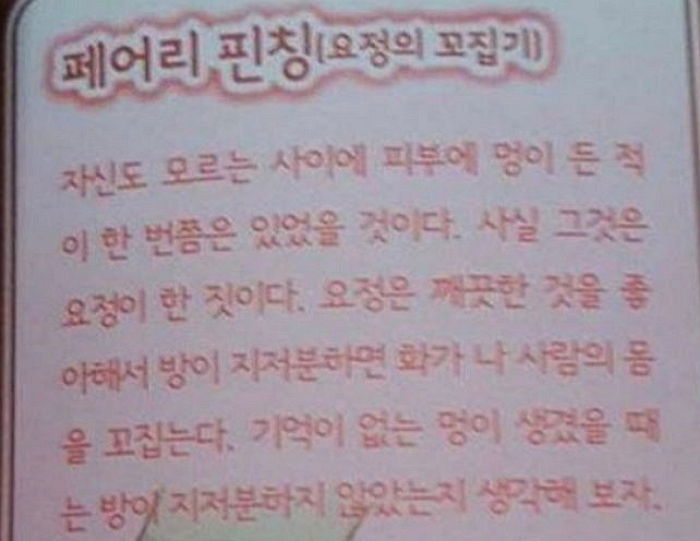 페어리 핀칭(요정의 꼬집기)
자신도 모르는 사이에 피부에 멍이 든 적
이 한 번쯤은 있었을 것이다. 사실 그것은
요정이 한 짓이다. 요정은 깨끗한 것을 좋
아해서 방이 지저분하면 화가 나 사람의 몸
을 꼬집는다. 기억이 없는 멍이 생겼을 때
는 방이 지저분하지 않았는지 생각해 보자.